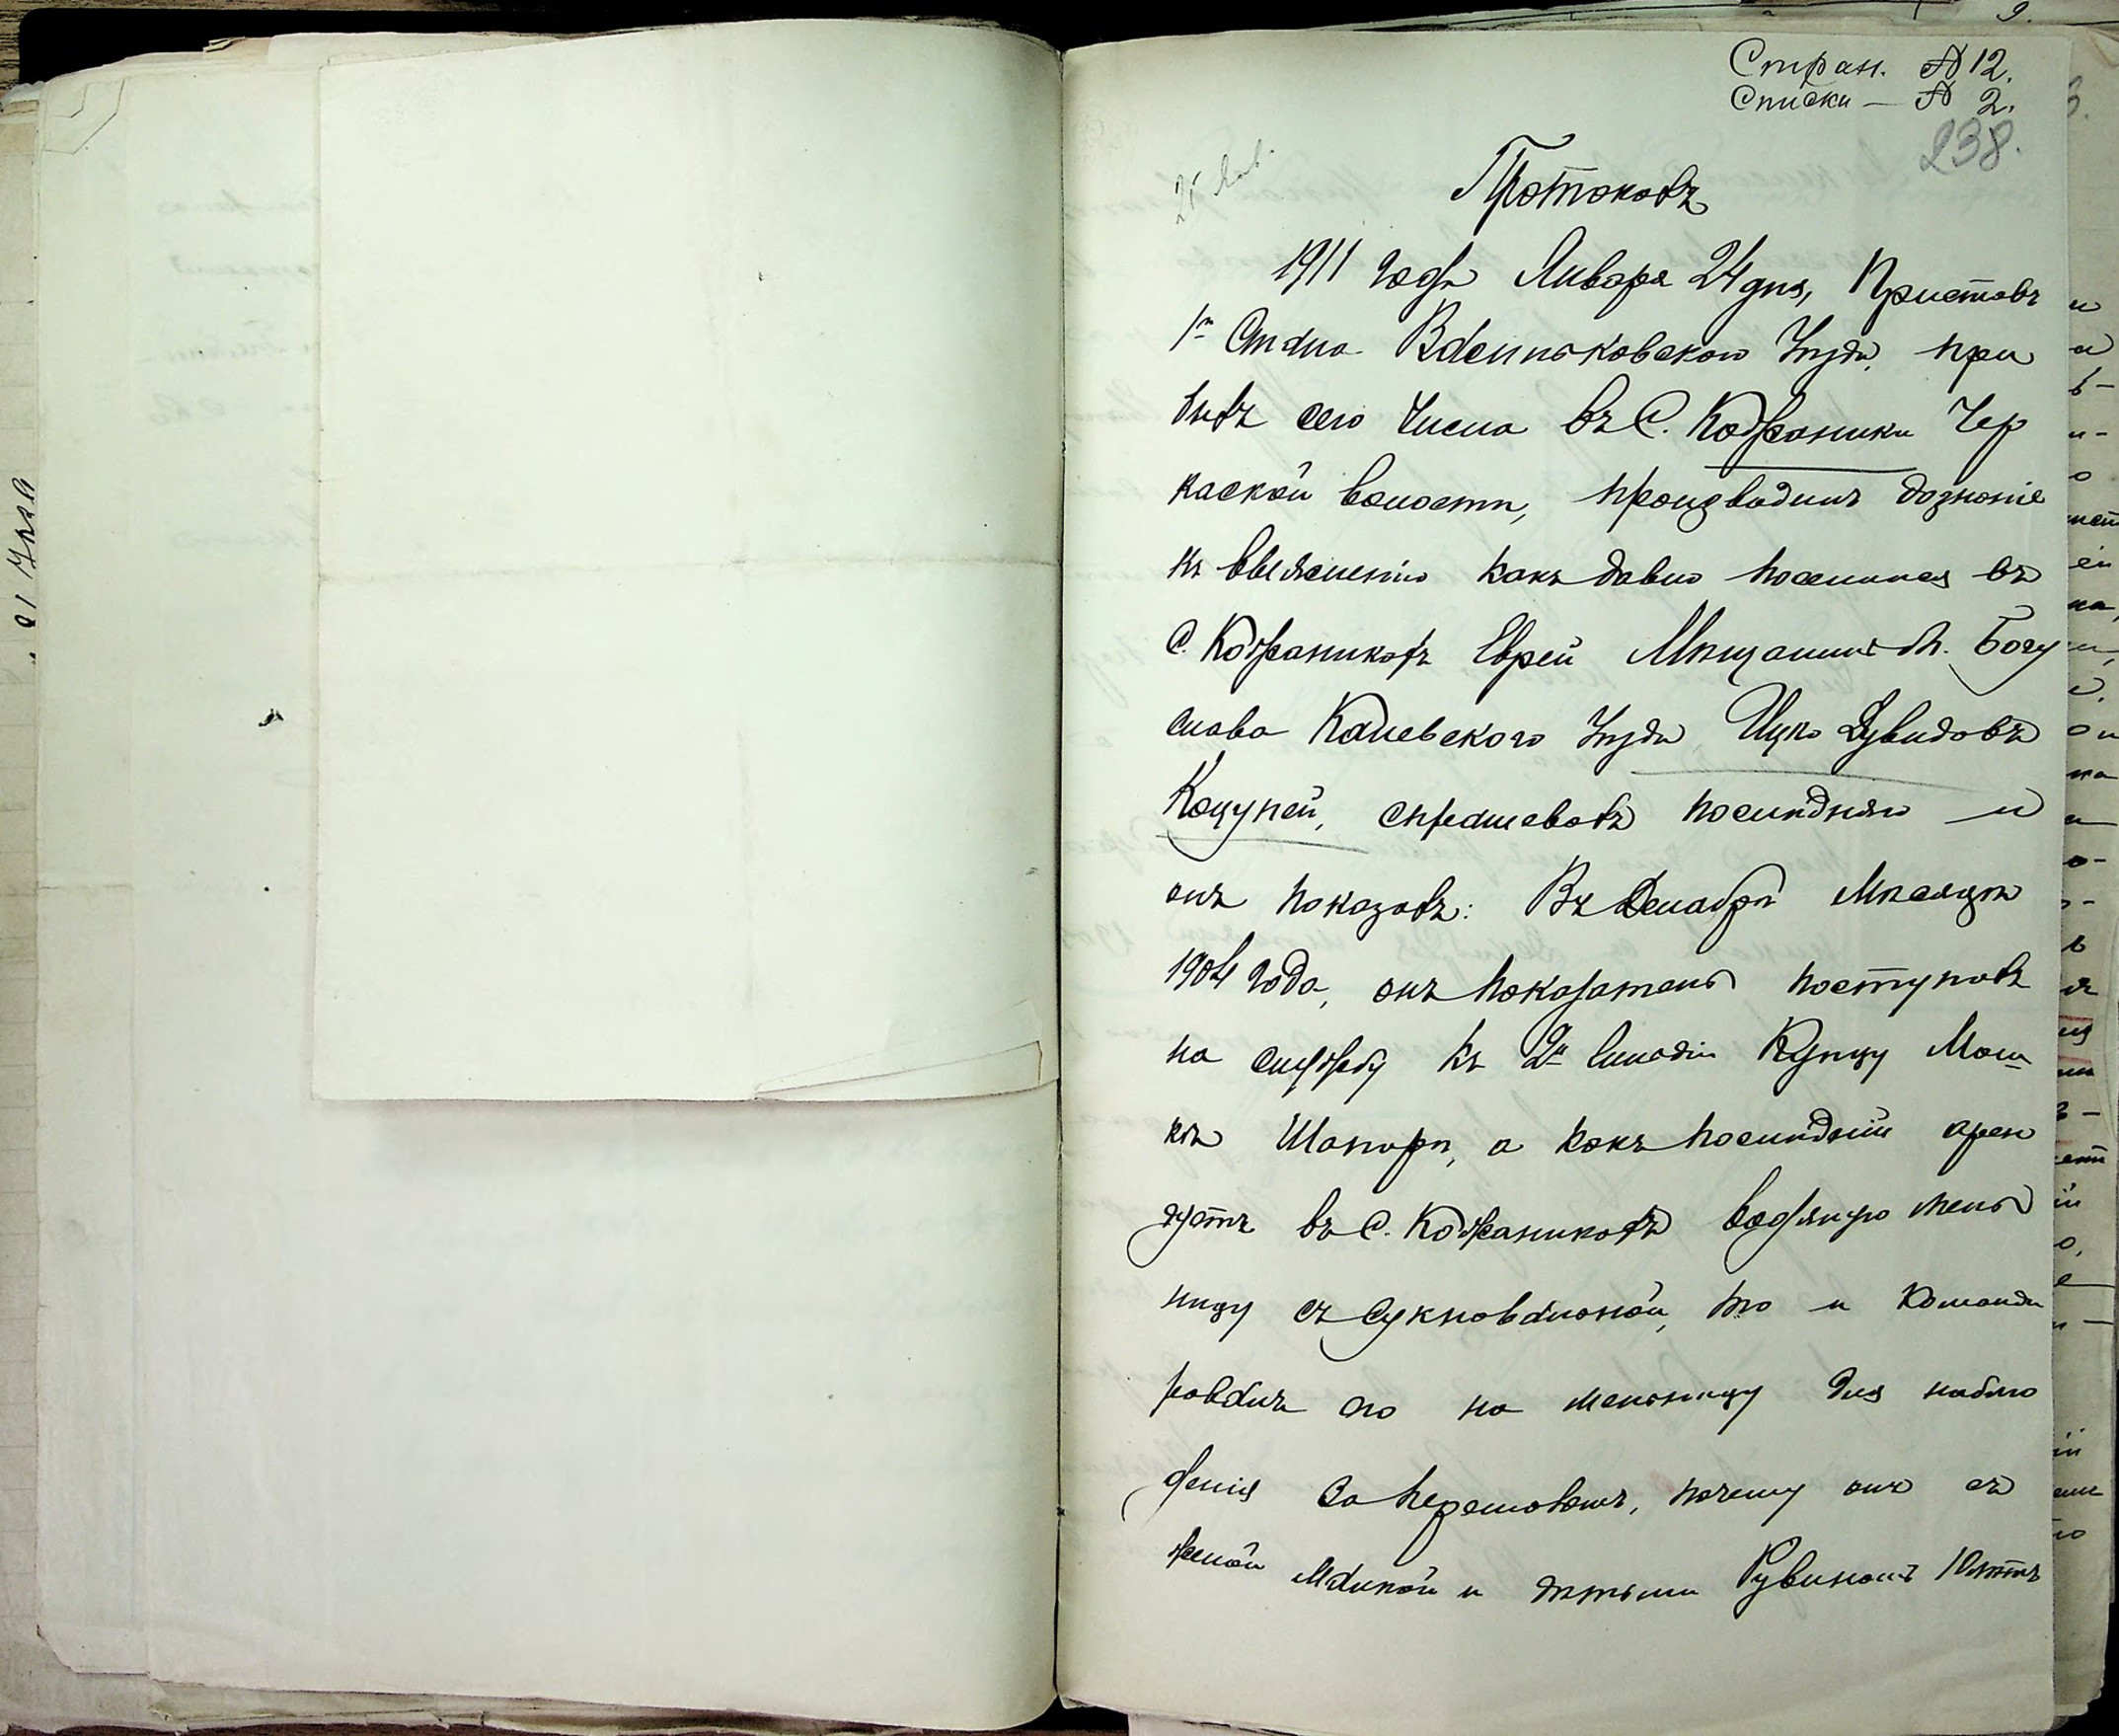 Стран. № 12.
Списки — № 2.
238.
Протоколъ
1911 года Января 24 дня, Приставъ
1го Стана Васильковскаго Уѣзда, при
бывъ сего числа въ С. Кожаники Чер
каской волости, производилъ дознаніе
къ выясненію какъ давно поселился въ
С. Кожаникахъ Еврей Мѣщанинъ М. Богу
слава Каневскаго Уѣзда Ицко Дувидовъ
Коцупей, спрашевалъ послѣдняго и
онъ показалъ: Въ Декабрѣ Мѣсяцѣ
1904 года, онъ показатель поступилъ
на службу къ 2й Гильдіи Купцу Мош
кѣ Шапирѣ, а какъ послѣдній арен
дуетъ въ С. Кожаникахъ водяную мель
ницу съ сукновальной, то и команди
ровалъ его на мельницу для наблю
денія за перемоломъ, почему онъ съ
женой Малкой и дѣтьми Рувиномъ